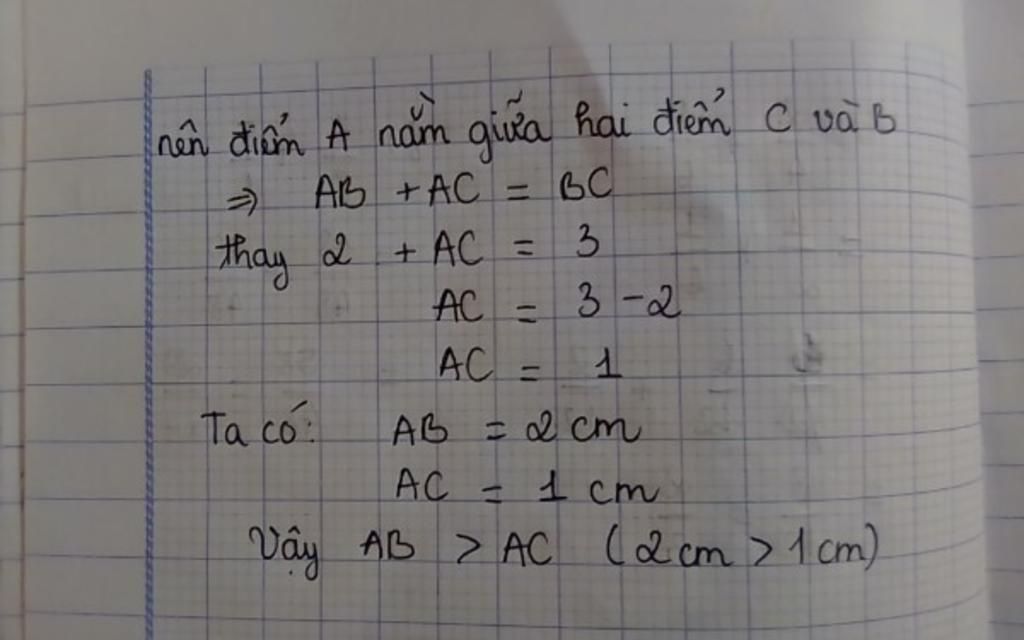 nên điểm A nằm giữa hai điểm C và B
⇒ AB + AC = BC
thay 2 + AC = 3
AC = 3 - 2
AC = 1
Ta có: AB = 2 cm
AC = 1 cm
Vậy AB > AC (2 cm > 1 cm)